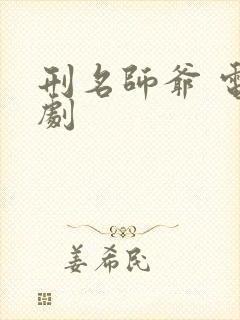 刑名師爺 電
劇
姜希民